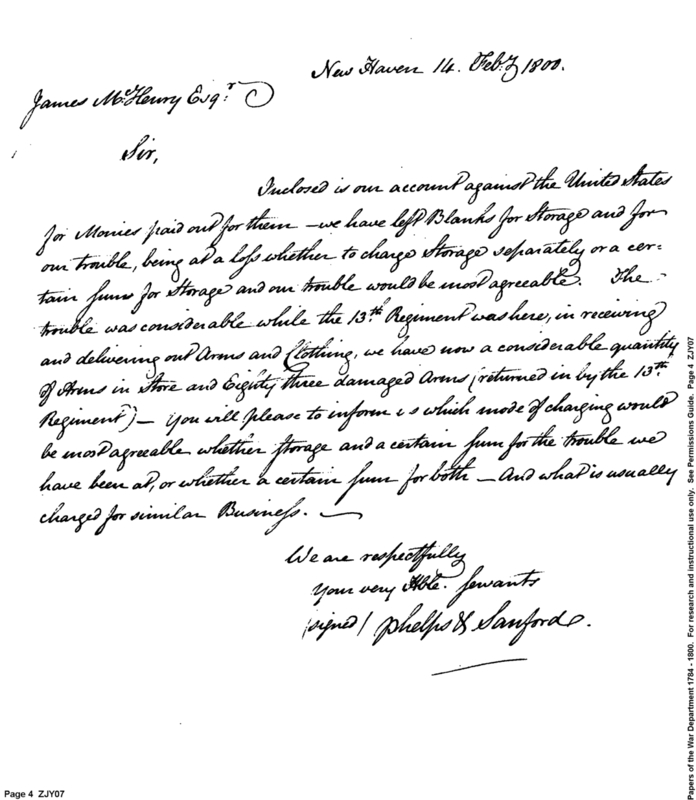 New Haven 14. Feby 1800.
James McHenry Esqr
Sir,
Inclosed is our account against the United States
for Monies paid out for them — we have left Blanks for Storage and for
our trouble, being at a loss whether to charge Storage separately or a cer=
tain sum for Storage and our trouble would be most agreeable. The
trouble was considerable while the 13th Regiment was here, in receiving
and delivering out Arms and Clothing, we have now a considerable quantity
of Arms in Store and Eighty three damaged Arms (returned in by the 13th
Regiment) — you will please to inform us which mode of charging would
be most agreeable whether storage and a certain sum for the trouble we
have been at, or whether a certain sum for both — And what is usually
charged for similar Business. —
We are respectfully
Your very Hble. servants
(signed) Phelps & Sanford.
Page 4 ZJY07
Papers of the War Department 1784 - 1800. For research and instructional use only. See Permissions Guide. Page 4 ZJY07